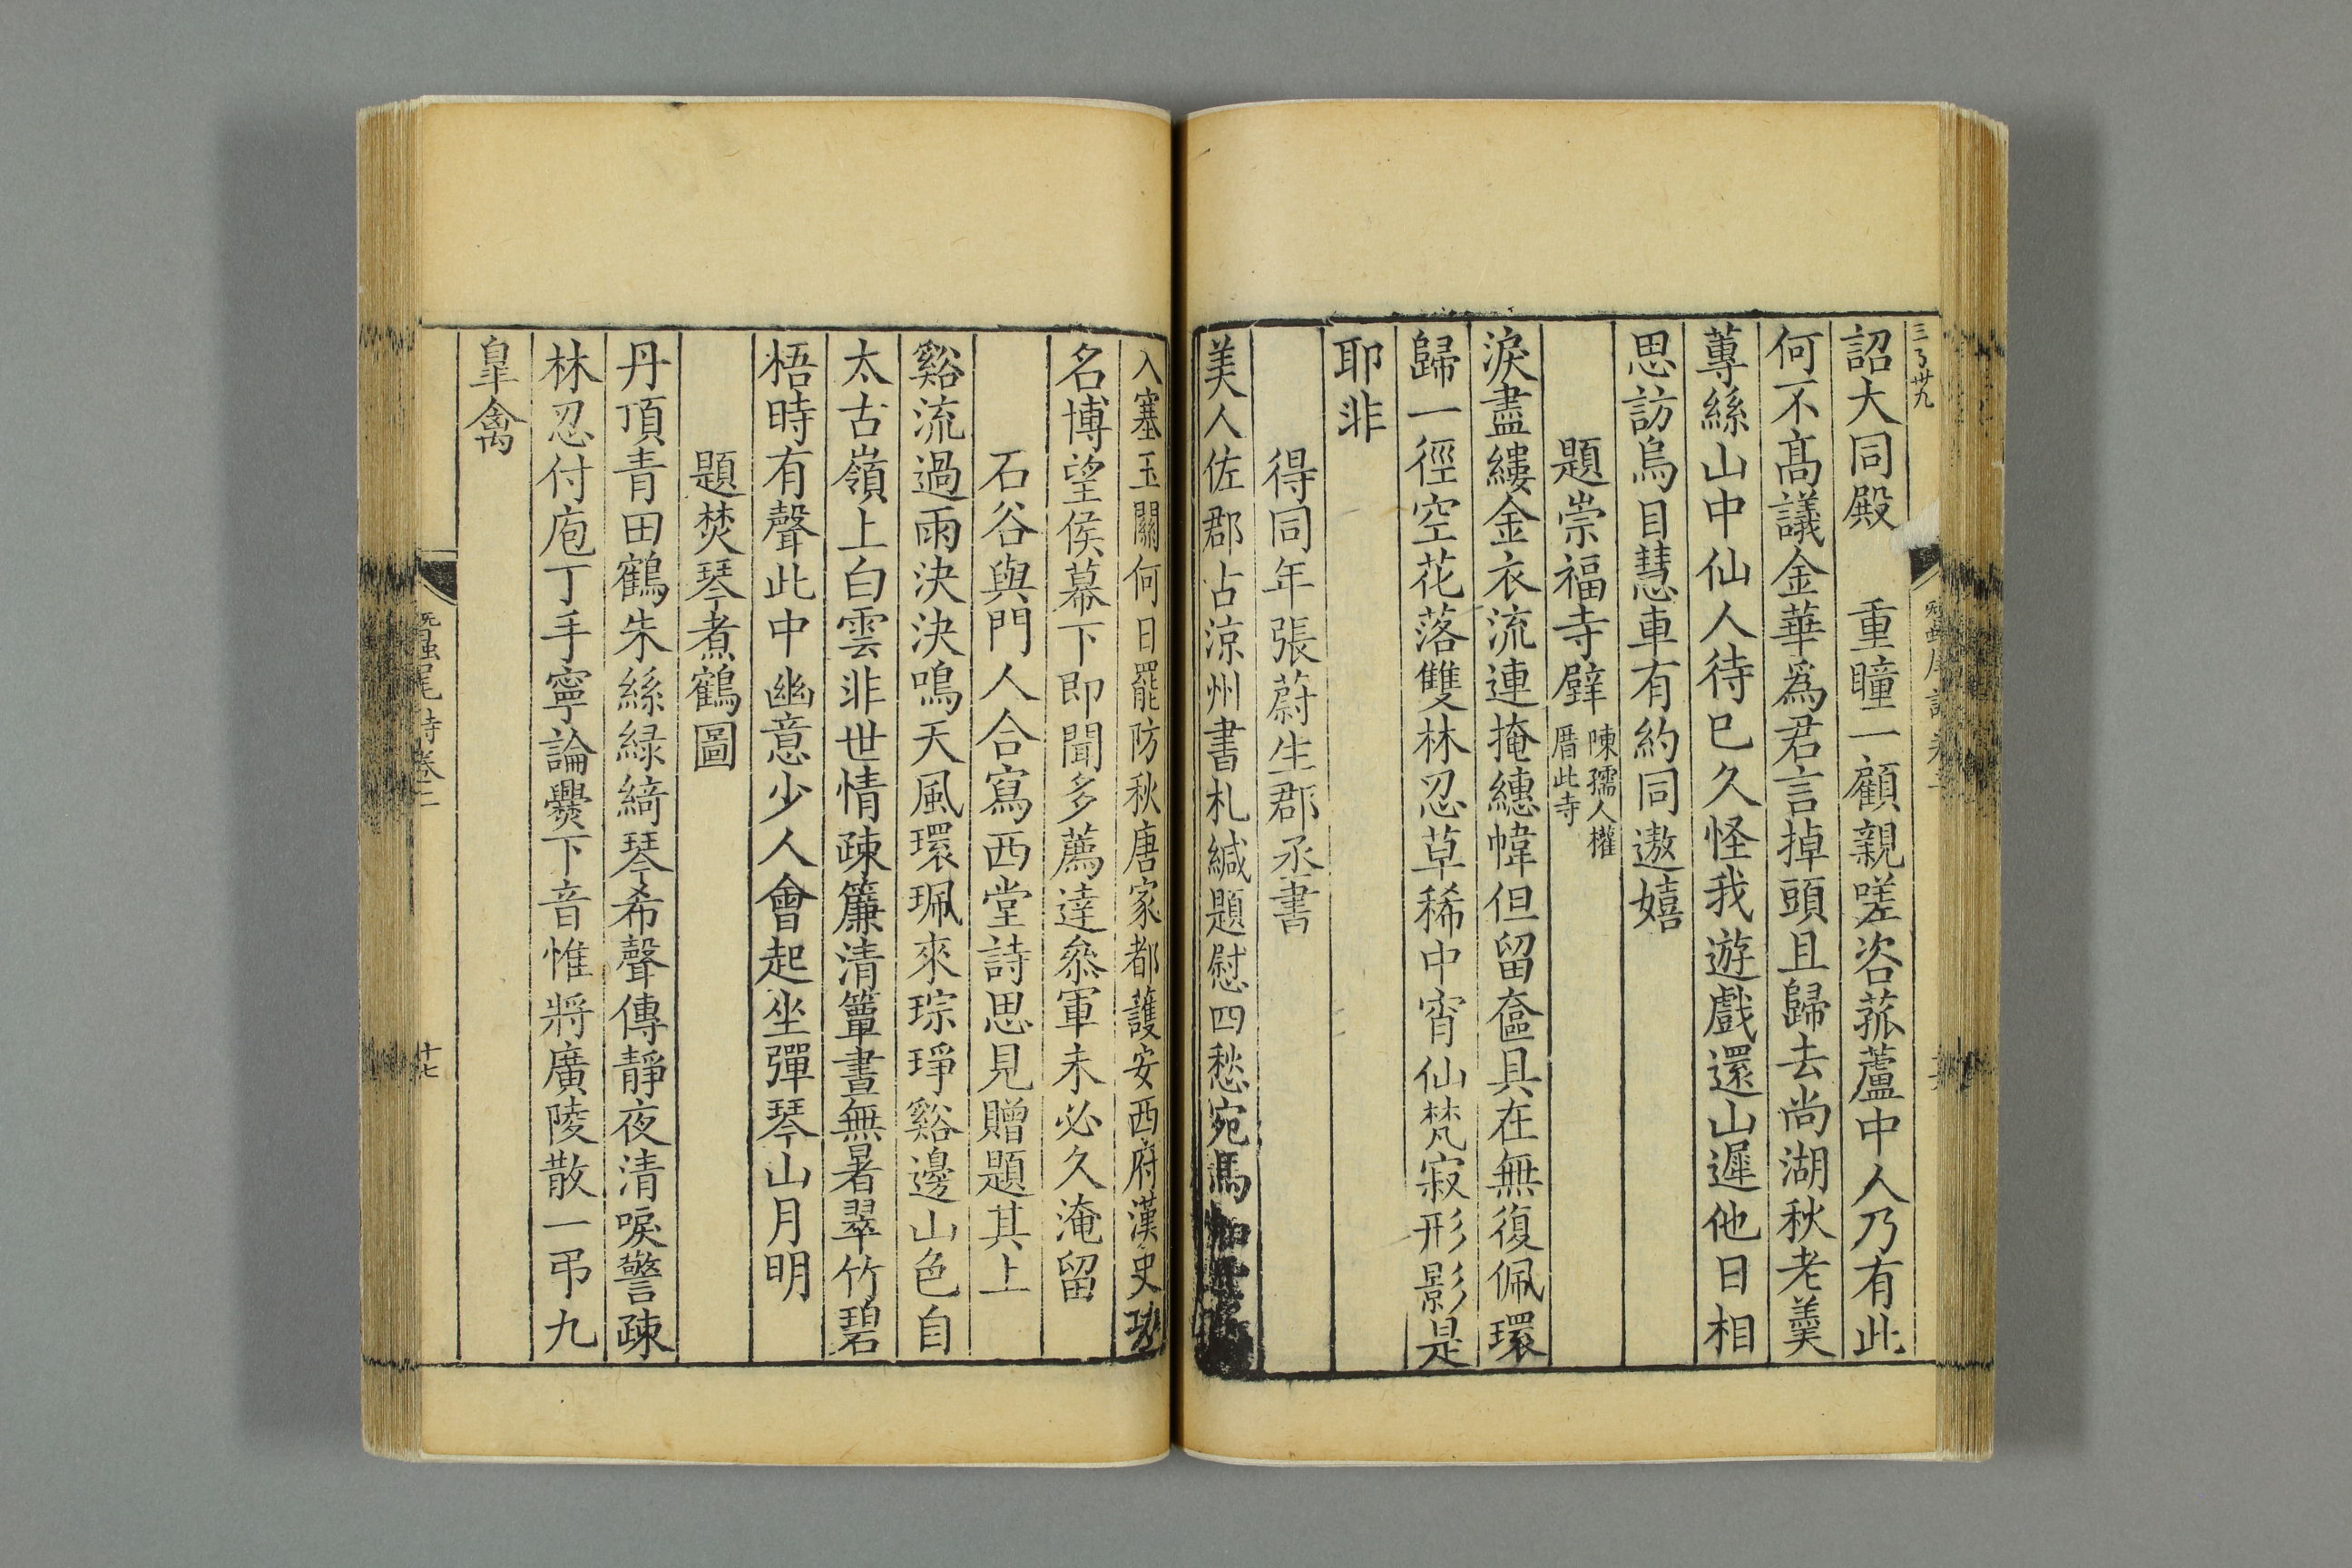 詔大同殿　重瞳一顧親嗟咨菰蘆中人乃有此
何不高議金華爲君言掉頭且歸去尚湖秋老羹
蓴絲山中仙人待已久怪我遊戲還山遲他日相
思訪烏目慧車有約同遨嬉
題崇福寺壁
陳孺人權
厝此寺
淚盡縷金衣流連掩繐幃但留奩具在無復佩環
歸一徑空花落雙林忍草稀中宵仙梵寂形影是
耶非
得同年張蔚生郡丞書
美人佐郡古涼州書札緘題慰四愁宛馬
入塞玉關何日罷防秋唐家都護安西府漢史功
名博望侯幕下即聞多薦達叅軍未必久淹留
石谷與門人合寫西堂詩思見贈題其上
谿流過雨決決鳴天風環珮來琮琤谿邊山色自
太古嶺上白雲非世情疎簾清簟晝無暑翠竹碧
梧時有聲此中幽意少人會起坐彈琴山月明
題焚琴煮鶴圖
丹頂青田鶴朱絲綠綺琴希聲傳靜夜清唳警疎
林忍付庖丁手寧論爨下音惟將廣陵散一弔九
臯禽
蠶尾詩卷二
十七